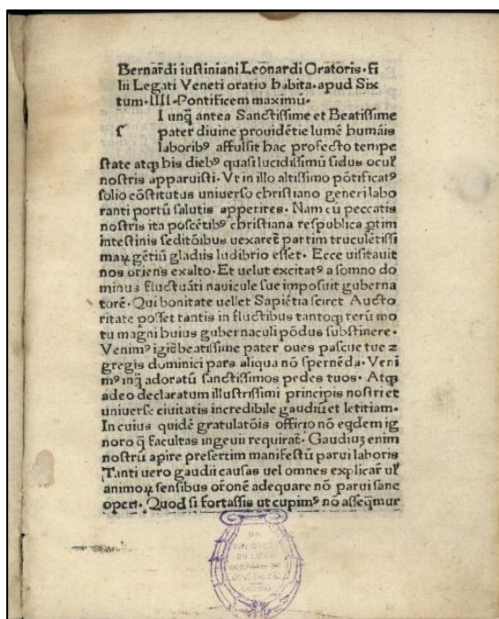 Bernardi iustiniani Leonardi Oratoris· fi
lii Legati Veneti oratio habita· apud Six
tum· IIII· Pontificem maximū·
I unq̄ antea Sanctissime et Beatissime
ſ pater diuine prouidētie lumē humāis
laboribꝰ affulsit hac profecto tempe
state atqꝫ his diebꝰ quasi lucidissimū sidus oculʼ
nostris apparuisti· Vt in illo altissimo pōtificatꝰ
solio cōstitutus uniuerso christiano generi labo
ranti portū salutis apperires· Nam cū peccatis
nostris ita poscētibꝰ christiana respublica ꝑtim
intestinis seditōibus uexaret᷑ partim truculētissi
maꝝ gētiū gladiis ludibrio esset· Ecce uisitauit
nos oriens exalto· Et uelut excitatꝰ a somno do
minus fluctuāti nauicule sue imposuit guberna
torē· Qui bonitate uellet Sapiētia sciret Aucto
ritate posset tantis in fluctibus tantoqꝫ rerū mo
tu magni huius gubernaculi pōdus substinere·
Venimꝰ igit᷑ beatissime pater oues pascue tue ⁊
gregis dominici pars aliqua nō spernēda· Veni
mꝰ inq̄ adoratū sanctissimos pedes tuos· Atqꝫ
adeo declaratum illustrissimi principis nostri et
uniuerse ciuitatis incredibile gaudiū et letitiam·
In cuius quidē gratulatōis officio nō eqdem ig
noro q̄ facultas ingenii requirat᷑· Gaudiuꝫ enim
nostrū apire presertim manifestū parui laboris
Tanti uero gaudii causas uel omnes explicar̄ ul̓
animoꝝ sensibus or̄onē adequare nō parui sane
operi· Quod si fortassis ut cupimꝰ nō asseq̄mur
DA